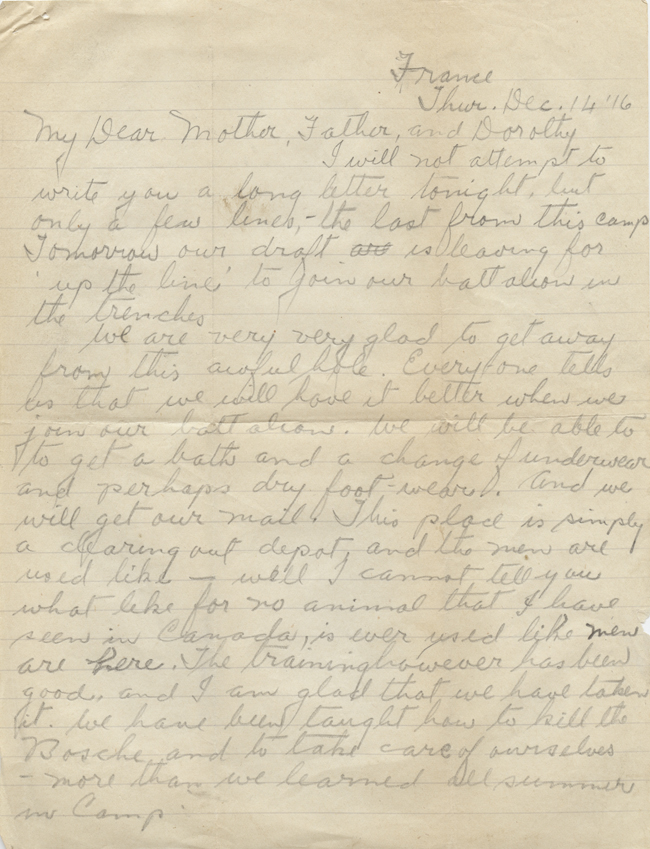 France
Thur. Dec. 14 '16
My Dear Mother, Father, and Dorothy
I will not attempt to
write you a long letter tonight, but
only a few lines, - the last from this camp
Tomorrow our draft are is leaving for
'up the line' to join our battalion in
the trenches
We are very very glad to get away
from this awful hole. Every one tells
us that we will have it better when we
join our battalion. We will be able to
to get a bath and a change of underwear
and perhaps dry foot-wear. And we
will get our mail. This place is simply
a clearing out depot, and the men are
used like - well I cannot tell you
what like for no animal that I have
seen in Canada, is ever used like men
are here. The training however has been
good, and I am glad that we have taken
it. We have been taught how to kill the
Bosche and to take care of ourselves
- more than we learned all summer
in Camp.